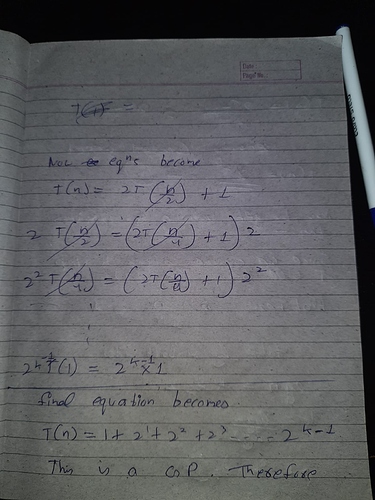 Date
Page No.
T(n) =
Now eqns become
T(n) = 2T(n/2) + 1
2 T(n/2) = (2T(n/4) + 1) 2
2² T(n/4) = (2T(n/8) + 1) 2²
2^k-1 T(1) = 2^k-1 x 1
final equation becomes
T(n) = 1 + 2¹ + 2² + 2³ ----- 2^k-1
This is a GP. Therefore